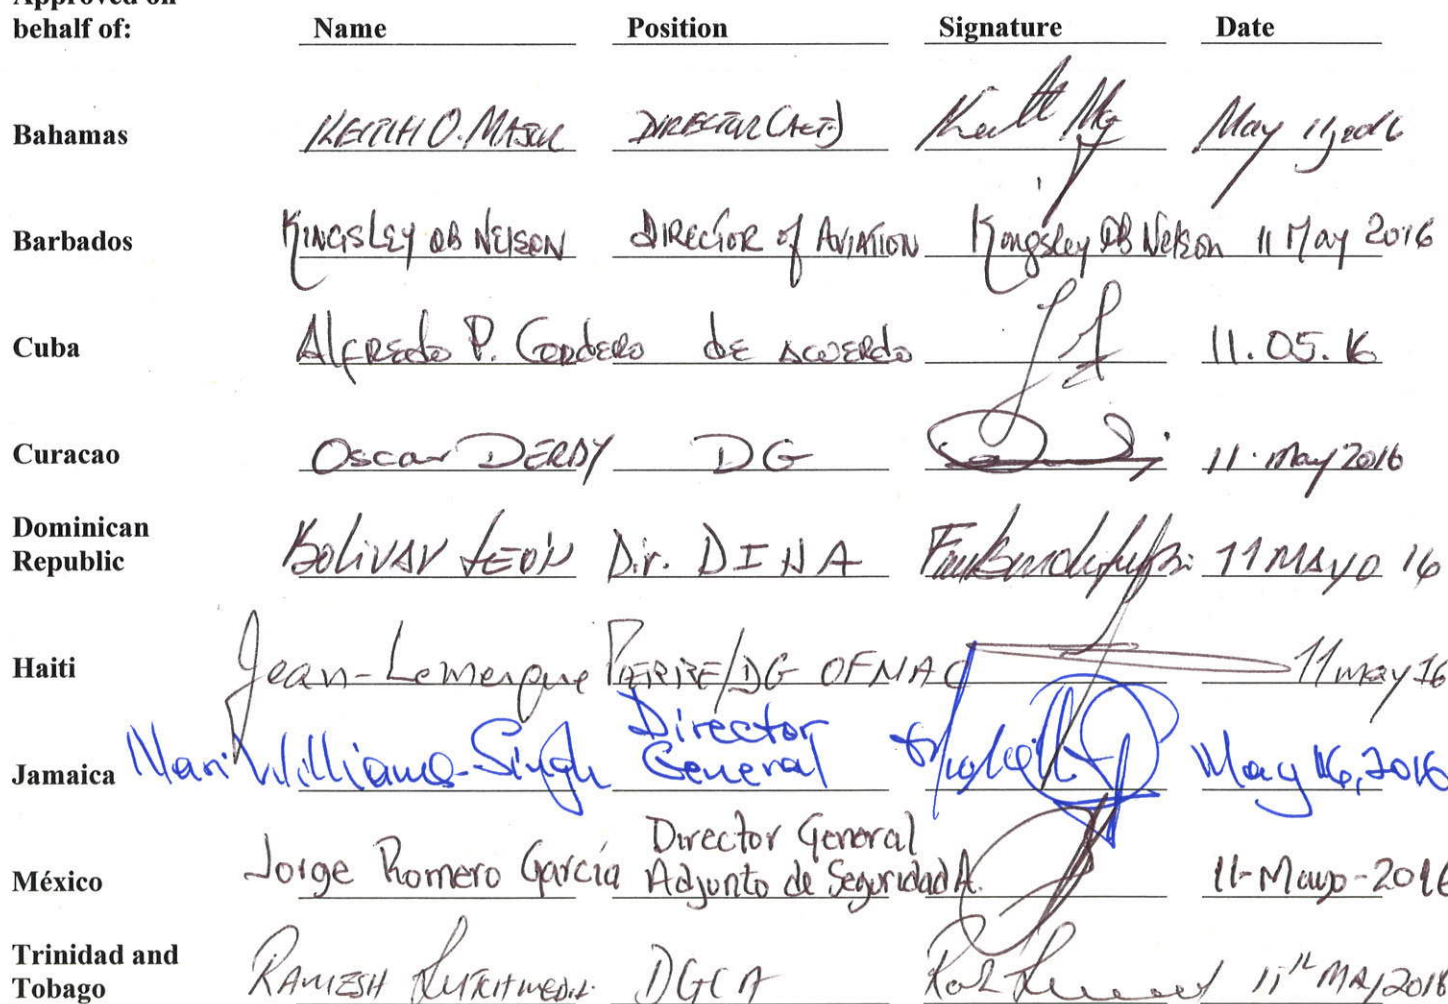 Approved on
behalf of: Name Position Signature Date
Bahamas KEITH O. MAJOR DIRECTOR (ACT.) May 11, 2016
Barbados KINGSLEY NELSON DIRECTOR of AVIATION Kingsley Nelson 11 May 2016
Cuba Alfredo P. Cordero de acuerdo 11.05.16
Curacao Oscar DERBY DG 11. May 2016
Dominican
Republic Bolivar LEÓN Dir. DINA 11 MAYO 16
Haiti Jean-Lemerque PIERRE/DG OFNAC 11 may 16
Director
Jamaica Nari Williams-Singh General May 16, 2016
Director General
México Jorge Romero García Adjunto de Seguridad A. 11-Mayo-2016
Trinidad and
Tobago RAMESH DGCA 11th MAY 2016